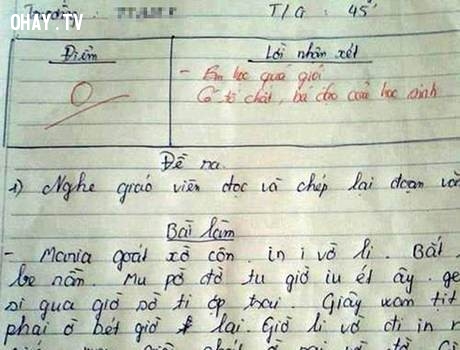 OHAY.TV
Trường: T/G: 45'
Điểm Lời nhận xét
0 - Em học quá giỏi
Có tố chất, bá đạo của học sinh
Đề ra
1) Nghe giáo viên đọc và chép lại đoạn văn
Bài làm
- Mania goát xờ côn in i vờ li. Bắt
be nằm. Mu pờ đờ tu giờ iu ét ây. ge
si qua giờ sờ ti ốp trai. Giây xam tịt
phai ờ bét giờ lai. Giờ li vờ đi in